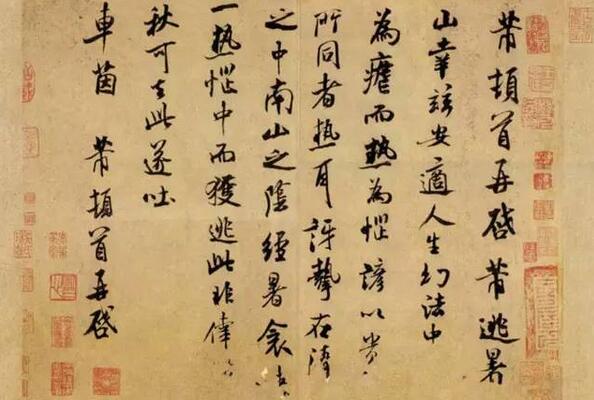 芾頓首再啓芾逃暑
山幸兹安適人生幻法中
為瘧而熱為惱諺以貴
所同者熱耳訝挈在隋
之中南山之陰經暑衾
一熱惱中而獲逃此非倖
秋可去此遂吐
車茵 芾頓首再啓